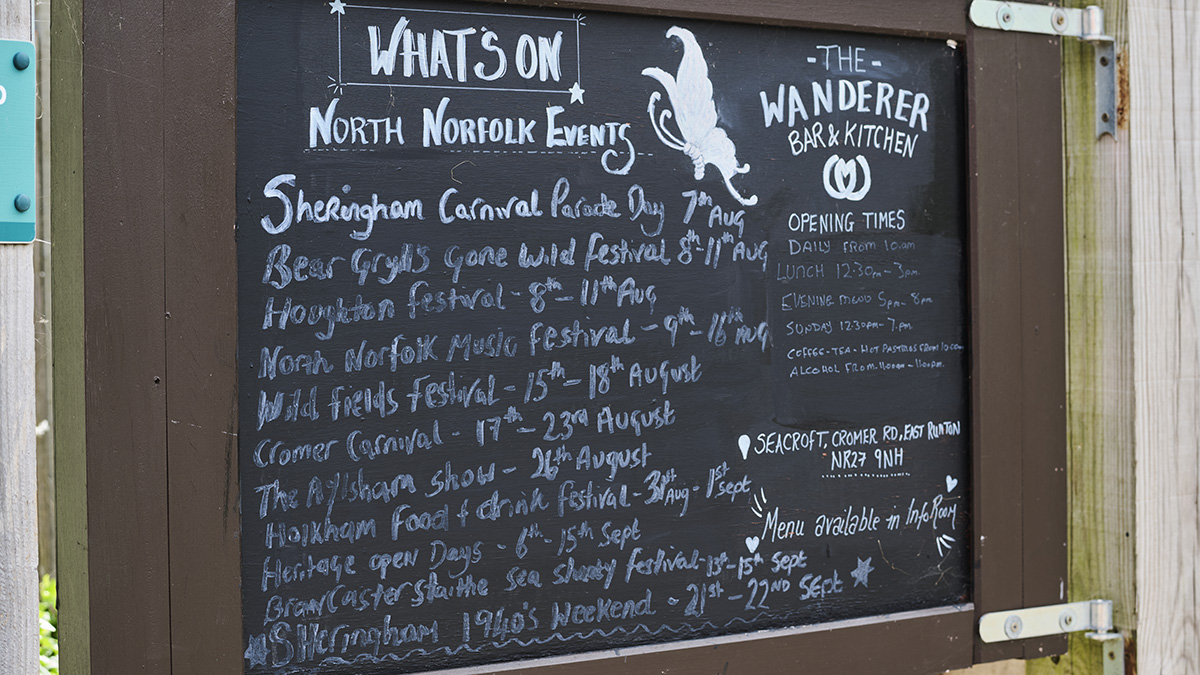 WHAT'S ON
NORTH NORFOLK EVENTS
Sheringham Carnival Parade Day 7th Aug
Bear Grylls Gone Wild Festival 8th-11th Aug
Houghton festival - 8th - 11th Aug
North Norfolk Music Festival - 9th - 16th Aug
Wild fields festival - 15th - 18th August
Cromer Carnival - 17th - 23rd August
The Aylsham show - 26th August
Holkham food + drink festival - 31st Aug - 1st Sept
Heritage open Days - 6th - 15th Sept
Brancaster Staithe sea festival - 15th Sept
SHeringham 1940's Weekend - 21st - 22ND Sept
- THE -
WANDERER
BAR & KITCHEN
OPENING TIMES
DAILY FROM 10am
LUNCH 12:30pm - 3pm
EVENING MENU 5pm - 8pm
SUNDAY 12:30pm - 7pm
COFFEE - TEA - HOT PASTRIES FROM 10am
ALCOHOL FROM 11am - 11pm
SEACROFT, CROMER RD, EAST RUNTON
NR27 9NH
Menu available in Info Room